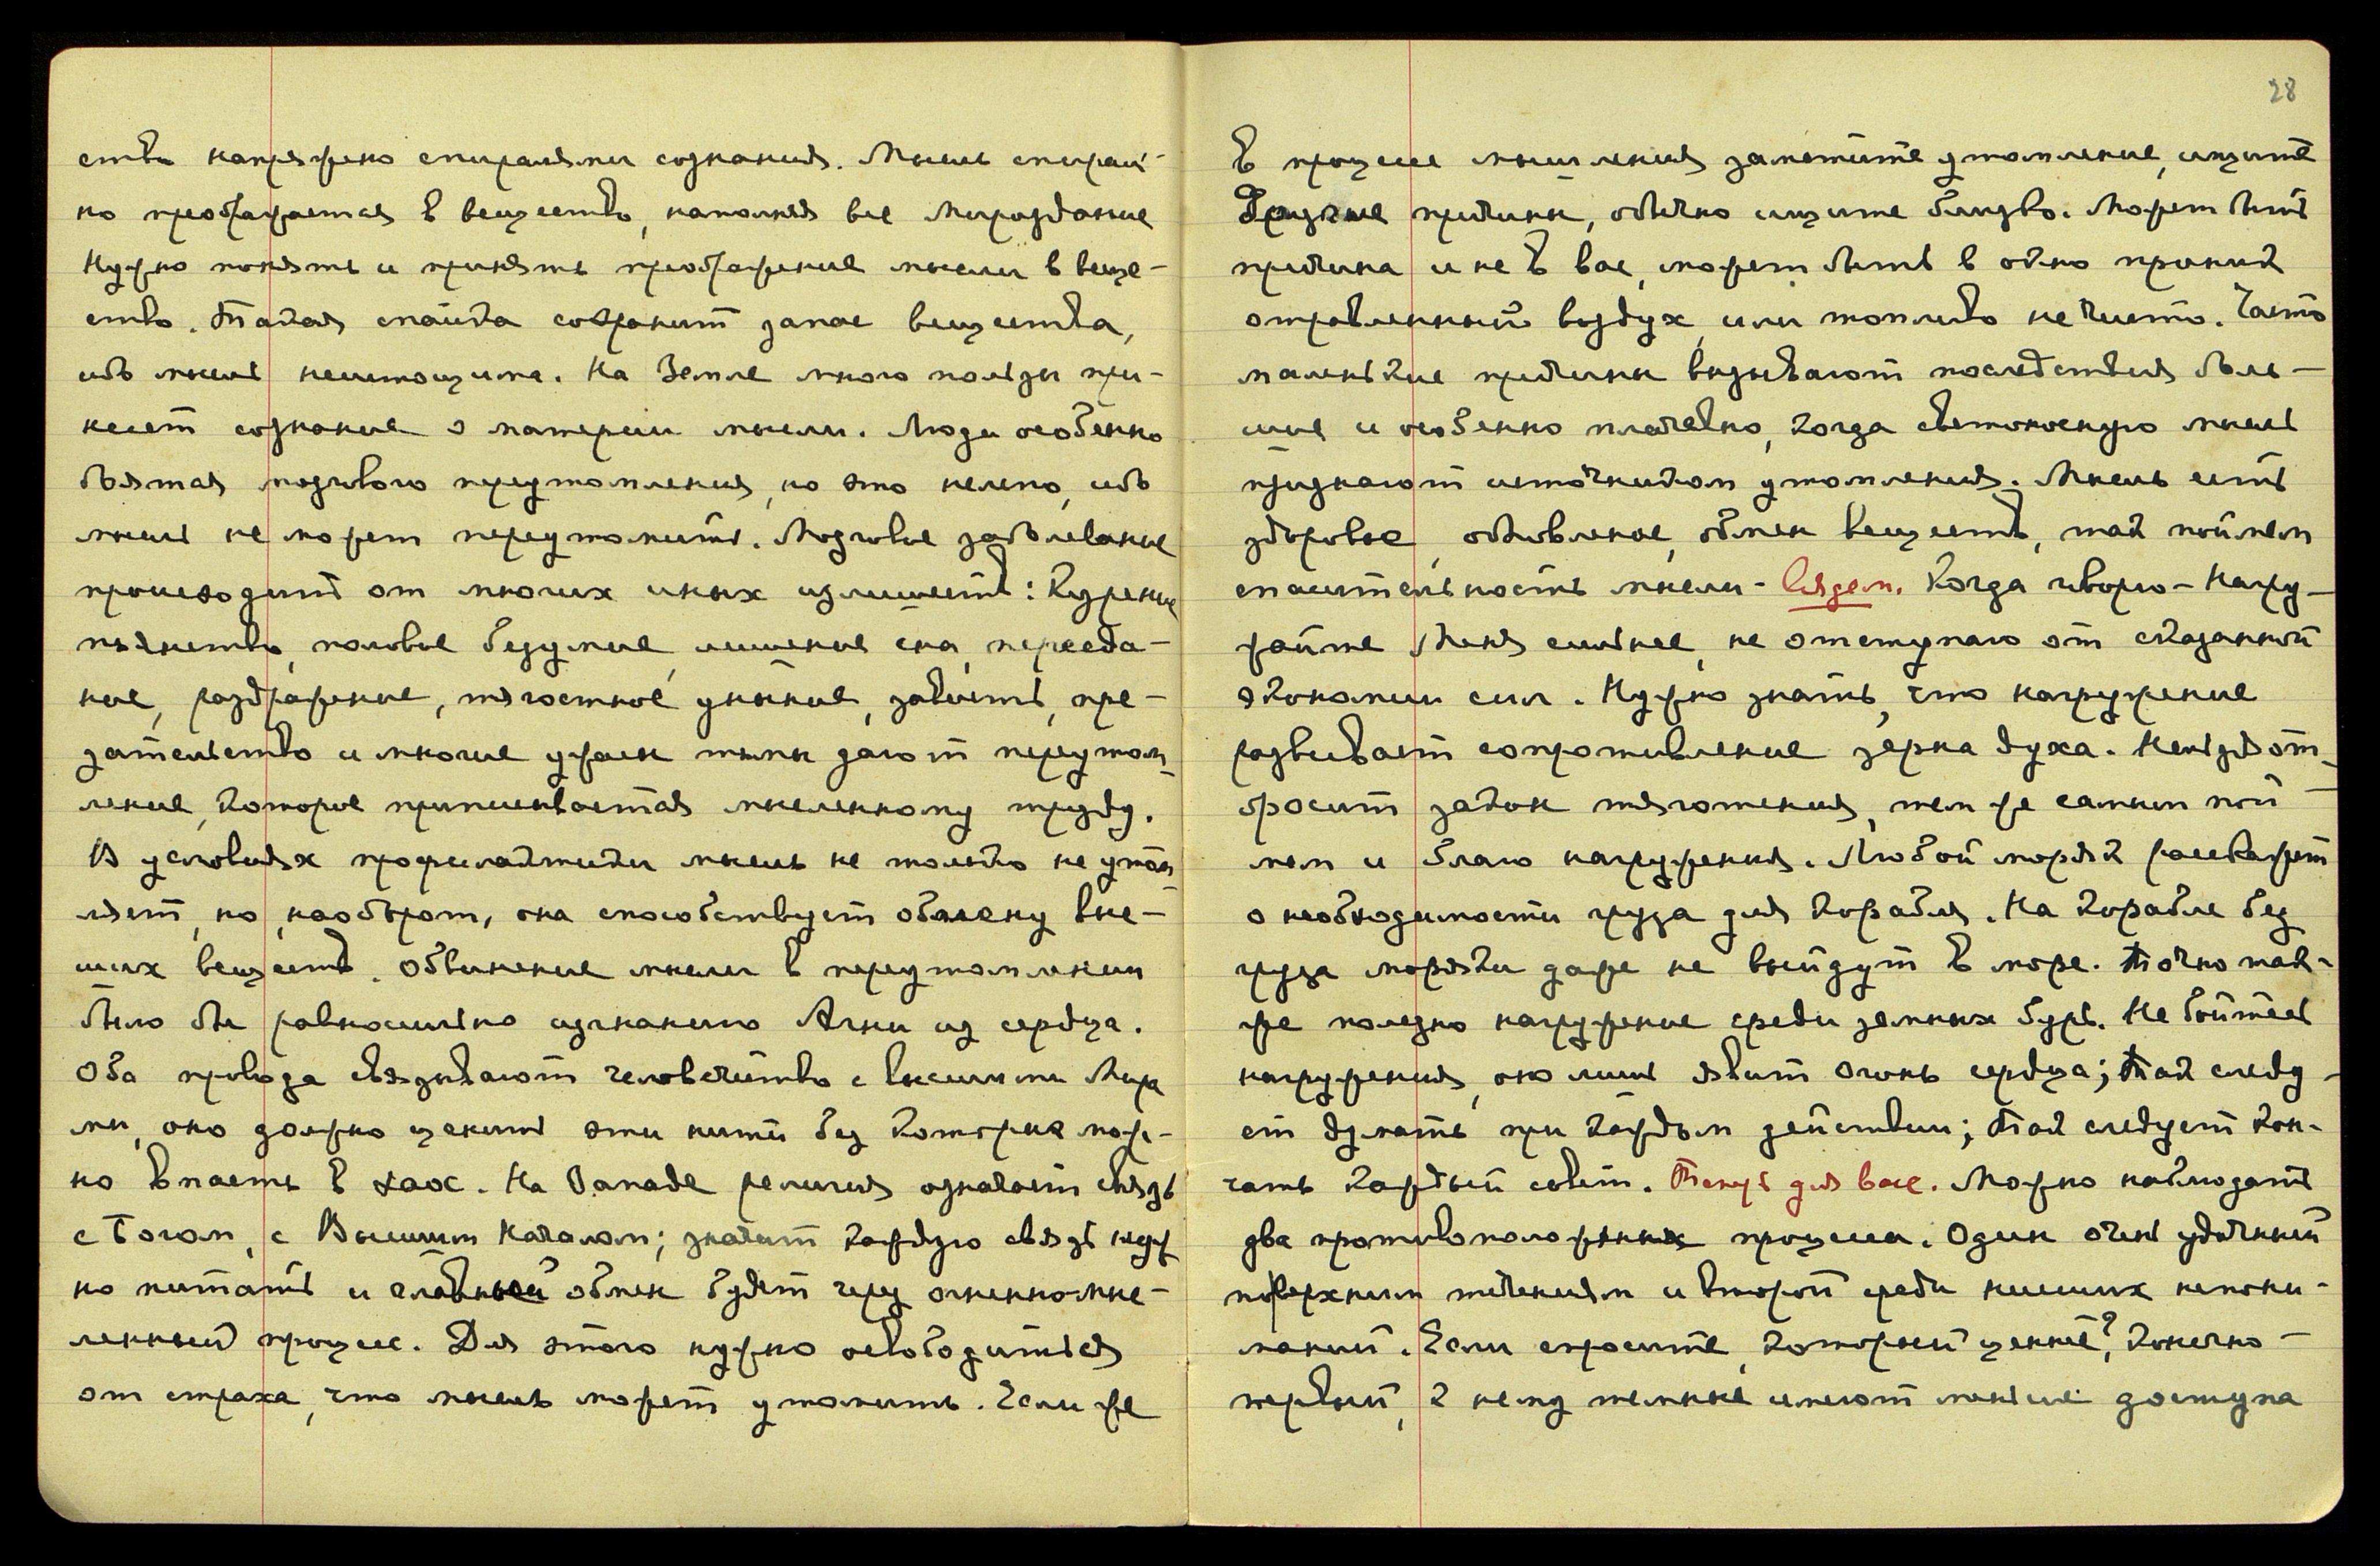 ство напряжено спиралями сознания. Мысль спираль-
но преображается в вещество, наполняя все Мироздание
Нужно понять и принять преображение мысли в веще-
ство. Такая спайка сохранит запас вещества,
ибо мысль неистощима. На Земле много пользы при-
несет сознание о материи мысли. Люди особенно
боятся мозгового переутомления, но это нелепо, ибо
мысль не может переутомить. Мозговое заболевание
происходит от многих иных излишеств: Курение
пьянство, половое безумие, лишение сна, перееда-
ние, раздражение, тягостное уныние, зависть, пре-
дательство и многие ужасы тьмы дают переутом-
ление, которое приписывается мысленному труду.
В условиях профилактики мысль не только не утом-
ляет, но, наоборот, она способствует обмену выс-
ших веществ. Обвинение мысли в переутомлении
было бы равносильно изгнанию Агни из сердца.
Оба провода связывают человечество с высшими Мира
ми, оно должно ценить эти нити без которых мож-
но впасть в хаос. На Западе религия означает связь
с Богом, с Высшим Началом; значит каждую связь нуж
но питать и главный обмен будет через огненномыс-
ленный процесс. Для этого нужно освободиться
от страха, что мысль может утомить. Если же
28
в процессе мышления заметите утомление, ищите
другие причины, обычно ищите близко. Может быть
причина и не в вас, может быть в окно проник
отравленный воздух, или топливо не чисто. Часто
маленькие причины вызывают последствия боль-
шие и особенно плачевно, когда светоносную мысль
признают источником утомления. Мысль есть
здоровье, обновление, обмен веществ, так поймем
спасительность мысли - Владем. Когда говорю - Нагру-
жайте Меня сильнее, не отступаю от сказанной
экономии сил. Нужно знать, что нагружение
развивает сопротивление зерна духа. Нельзя от-
бросить закон тяготения, тем же самым пой-
мем и благо нагружения. Любой моряк расскажет
о необходимости груза для корабля. На корабле без
груза моряки даже не выйдут в море. Точно так-
же полезно нагружение среди земных бурь. Не бойтесь
нагружения, оно лишь явит огонь сердца; Так следу-
ет думать при каждом действии; Так следует кон-
чать каждый совет. Теперь для вас. Можно наблюдать
два противоположных процесса. Один очень удачный
поверхним течениям и второй среди низших непони-
маний. Если спросите, который ценнее? Конечно -
первый, к нему темные имеют меньше доступа